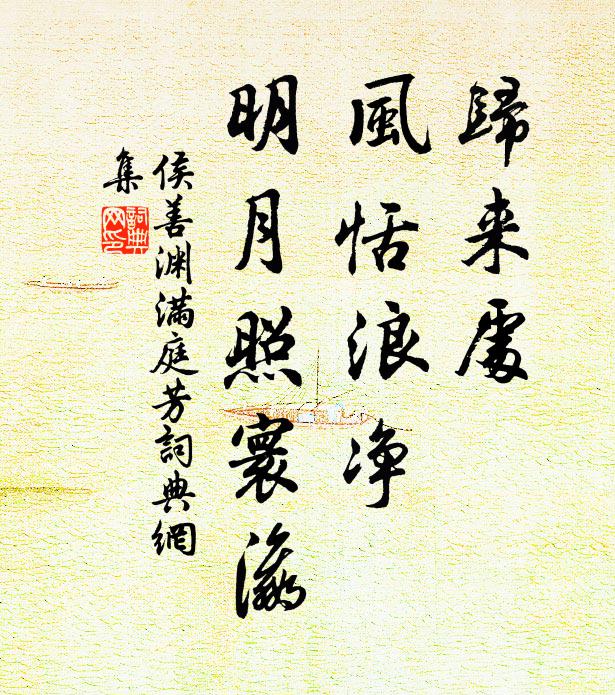 歸来處
風恬浪净
明月照寰瀛
侯善渊满庭芳詞典網
集
詞典网印